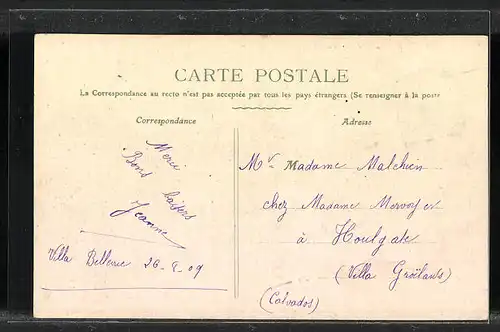 CARTE POSTALE
La Correspondance au recto n'est pas acceptée par tous les pays étrangers (Se renseigner à la poste
Correspondance
Adresse
Merci
Bons baisers
Jeanne
Villa Bellevue 26-8-09
Mr Madame Malchien
chez Madame
à Houlgate
(Villa
(Calvados)